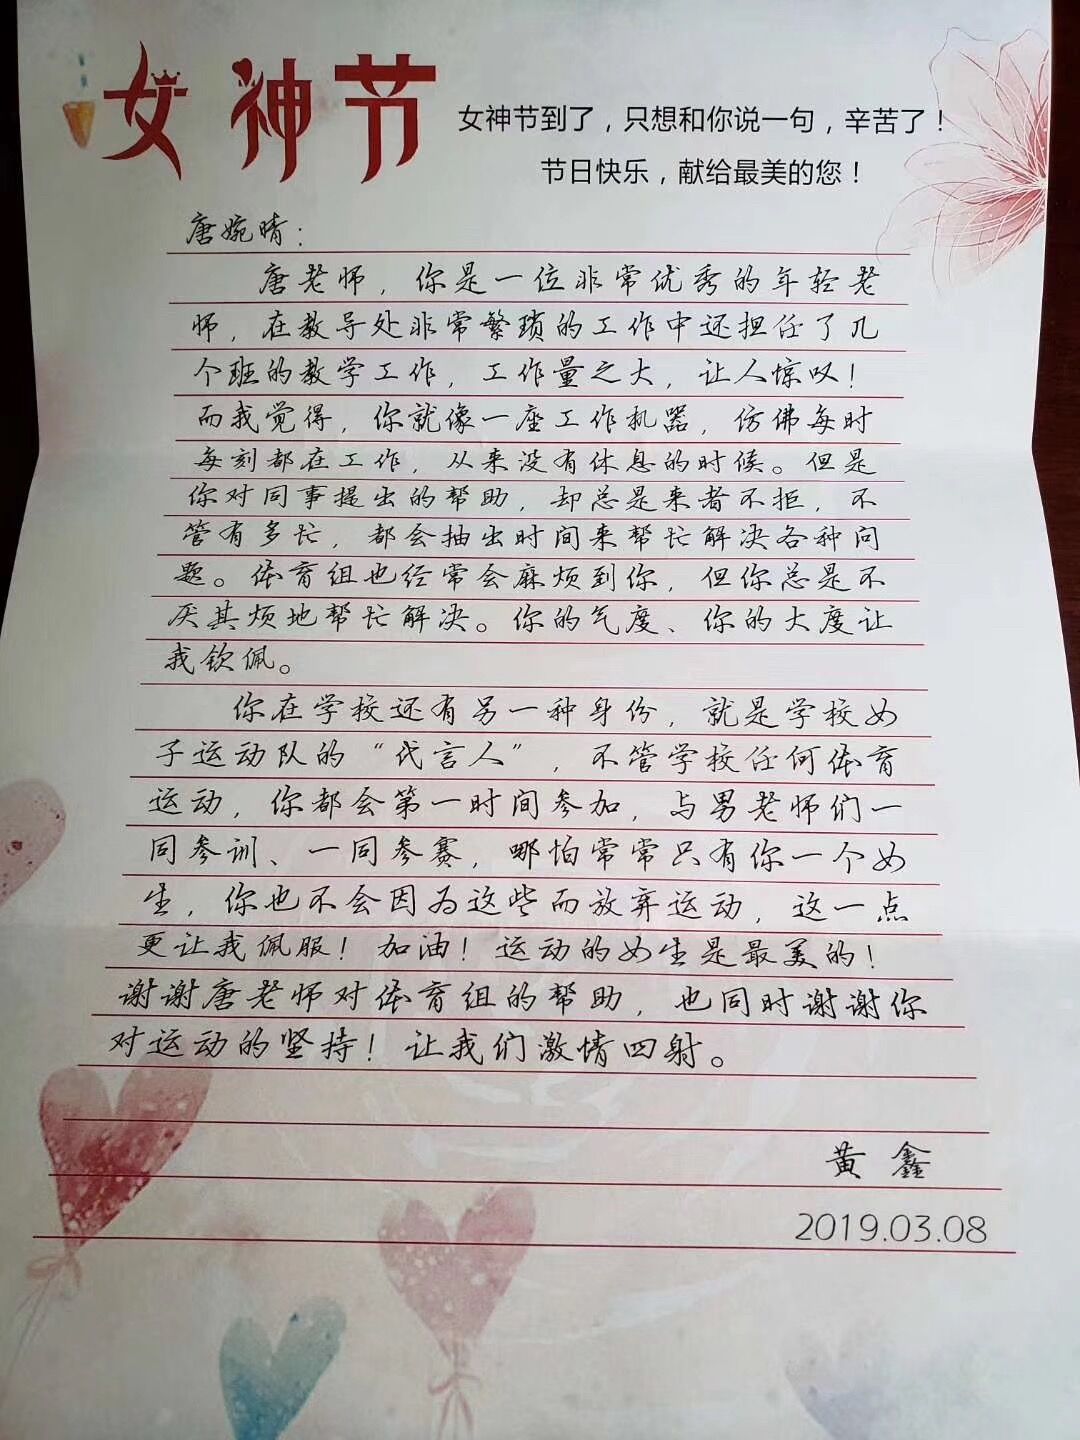 女神节
女神节到了，只想和你说一句，辛苦了！
节日快乐，献给最美的您！
唐婉晴：
唐老师，你是一位非常优秀的年轻老
师，在教导处非常繁琐的工作中还担任了几
个班的教学工作，工作量之大，让人惊叹！
而我觉得，你就像一座工作机器，仿佛每时
每刻都在工作，从来没有休息的时候。但是
你对同事提出的帮助，却总是来者不拒，不
管有多忙，都会抽出时间来帮忙解决各种问
题。体育组也经常会麻烦到你，但你总是不
厌其烦地帮忙解决。你的气度、你的大度让
我钦佩。
你在学校还有另一种身份，就是学校女
子运动队的“代言人”，不管学校任何体育
运动，你都会第一时间参加，与男老师们一
同参训、一同参赛，哪怕常常只有你一个女
生，你也不会因为这些而放弃运动，这一点
更让我佩服！加油！运动的女生是最美的！
谢谢唐老师对体育组的帮助，也同时谢谢你
对运动的坚持！让我们激情四射。
黄鑫
2019.03.08